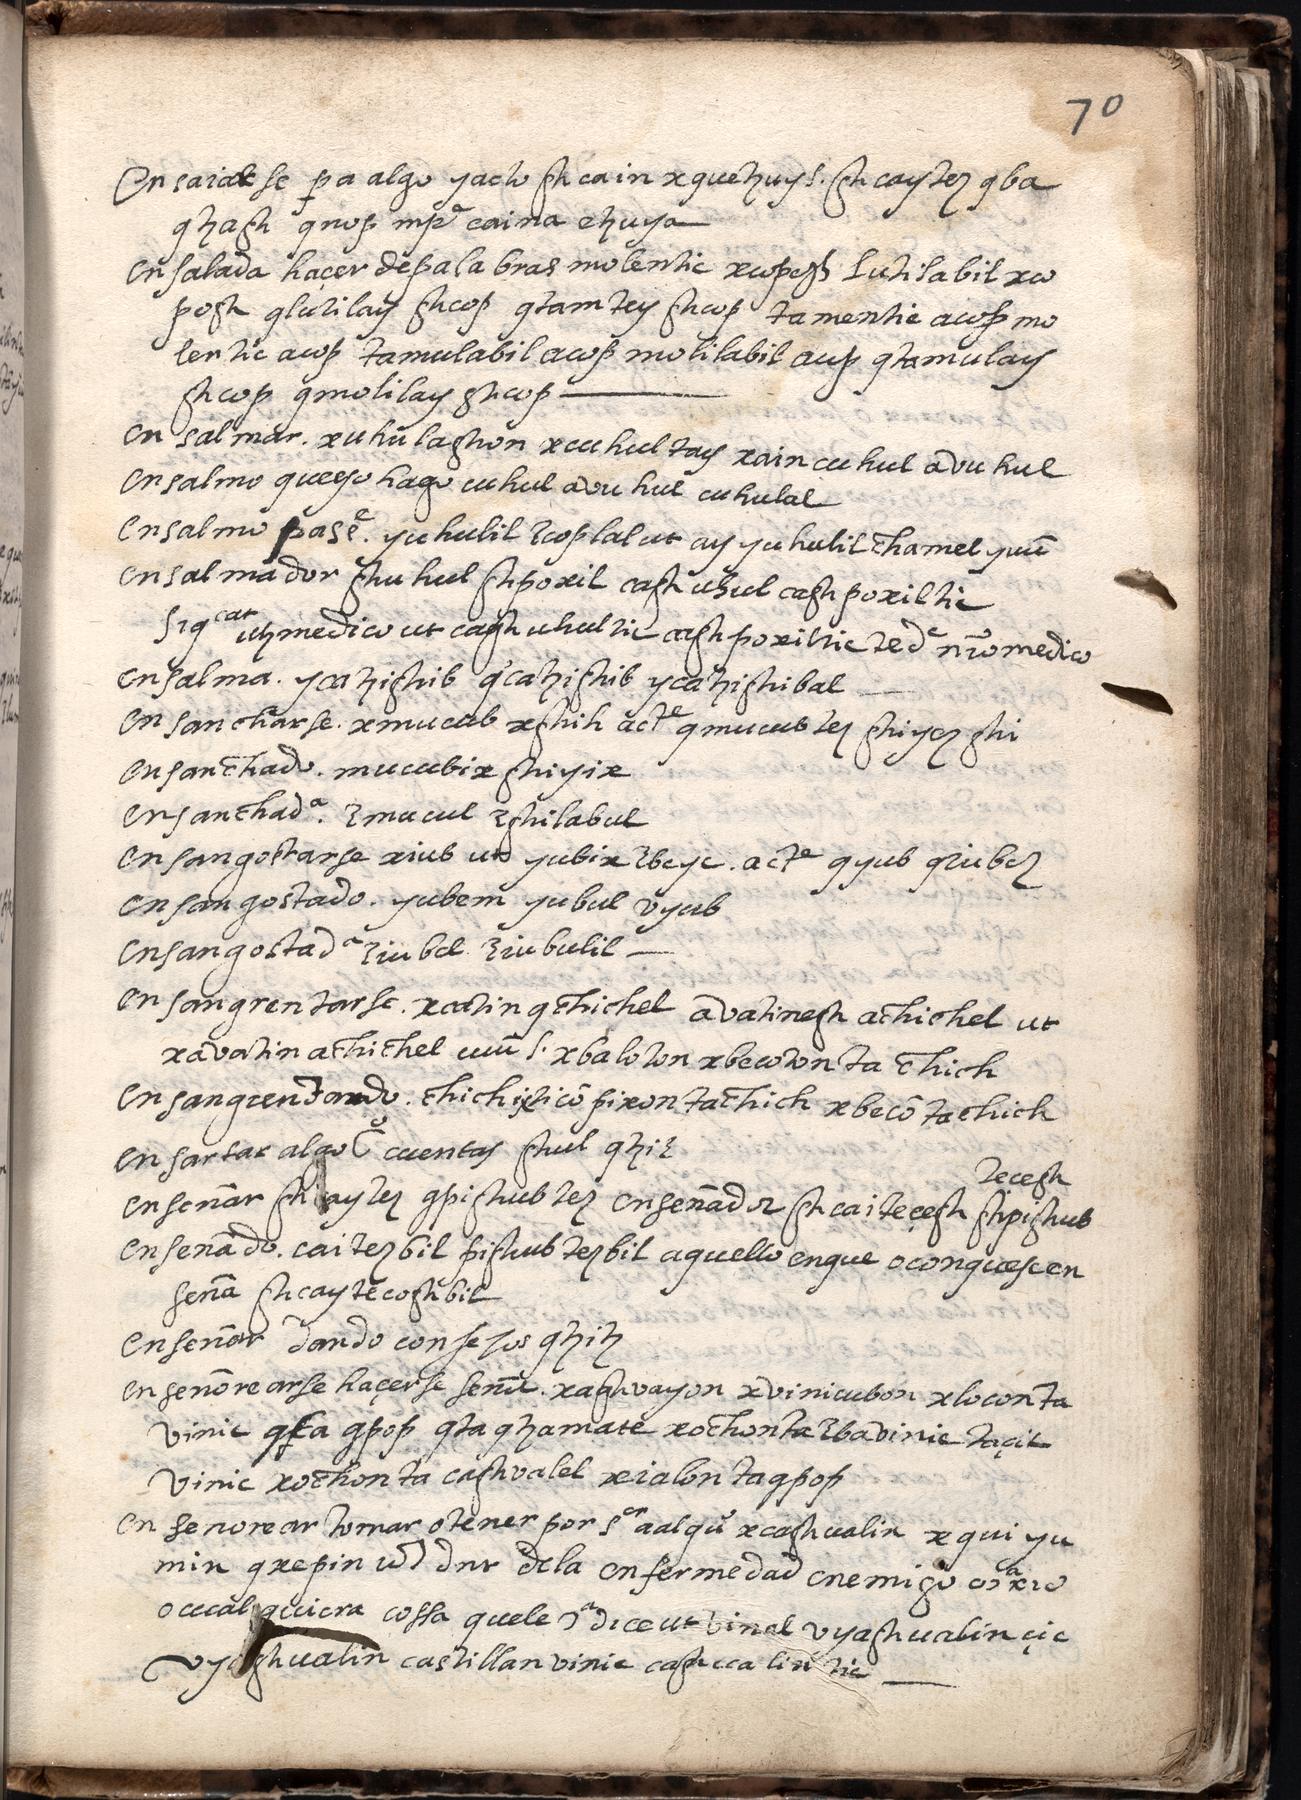 70
Ensaiarse pa algo yacto ghcain xquetzuy l. ghcaytez qba
qtzagh qnop mpe caina etzuya
ensalada haçer de palabras molentic xcopogh Lutilabil xco
pogh qlutilay ghcop qtamtey ghcop tamentic acop mo
lentic acop tamulabil acop molilabil acop qtamulay
ghcop qmolilay ghcop
en salmar. xuhulaghon xcuhultay xain cuhul avuhul
ensalmo queyo hago cuhul avuhul cuhulal
ensalmo pase. yuhulil zcoplal ut ay yuhulil chamel yuū
ensalmador ghuhul ghpoxil cagh uhul cagh poxiltic
sigcat utz medico ut cagh uhultic cagh poxiltic te de nr̄o medico
ensalma. ycatzighib qcatzighib ycatzighibal
ensancharse. xmucub xghih acte qmucubtez ghiyez ghi
ensanchado. mucubix ghiyix
ensanchada. zmucul zghilabul
ensangostarse xiub ut yubix zbeye. acte qyub qiubez
ensangostado. yubem yubul vyub
ensangostada ziubel ziubulil
ensangrentarse. xcatin qchichel avatinegh achichel ut
xavatin achichel cuū l. xbaloton xbecoton ta chich
ensangrentando. chichixticō pixon tachich xbecō tachich
ensartar algo cuentas ghul qtziz
tecegh
enseñar ghcaytez qpighubtez enseñador ghcaiteçegh ghpighub
enseñado. caitezbil pighubtezbil aquello enque oconquesen
seña ghcaytecoghbil
enseñar dando consejos qtzitz
enseñorearse haçerse señor. xaghvayon xvinicubon xlocon ta
vinic qpop qta qtzamate xochonta zba vinic taçit
vinic xochonta caghvalel xcialon ta qpop
enseñorear tomar otener por sor aalgū xcaghualin xqui yu
min qxepin dnt dela enfermedad enemigo
ocualquiera cossa quele dice ut vinal vyaghualin çic
vyaghualin castillan vinic caghualin tic